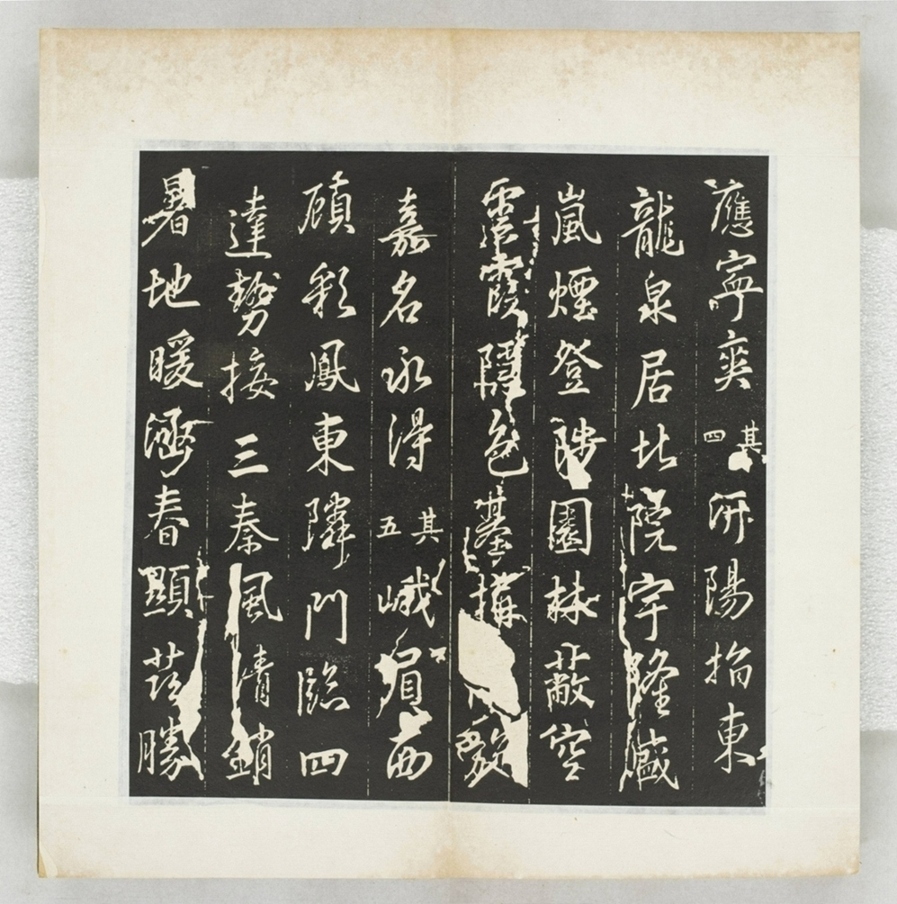 應寧爽其四汧陽指東
龍泉居北院宇隆盛
嵐煙登陟園林蔽空
雲霞隱色基構
嘉名永得其五峨眉西
顧彩鳳東隣門臨四
達勢接三秦風清銷
暑地暖涵春顯茲勝